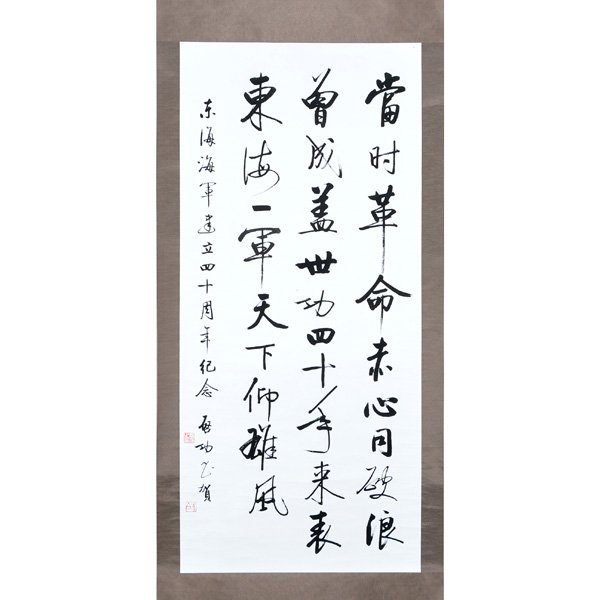 當时革命赤心同破浪
曾成盖世功四十年来表
東海一軍天下仰雄风
东海海軍建立四十周年纪念 启功书賀